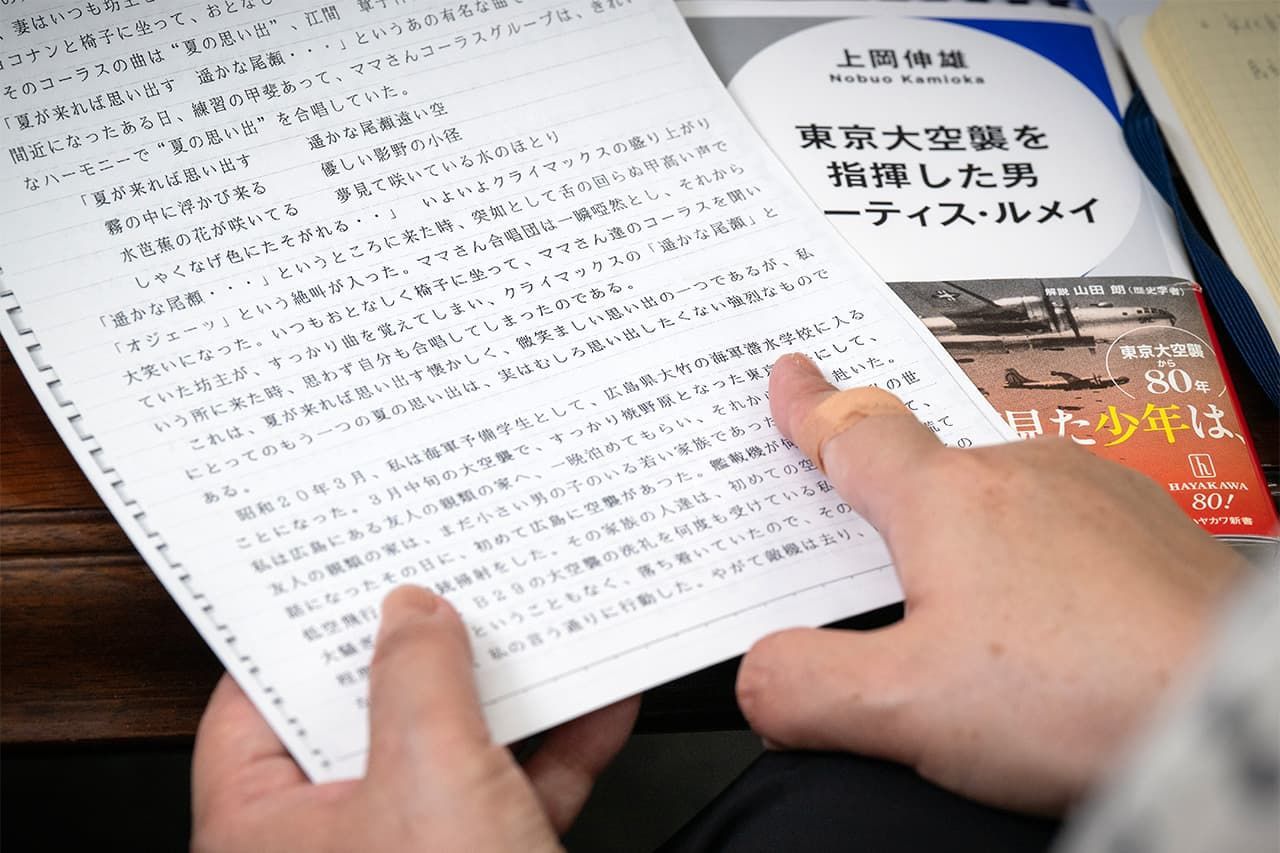 妻はいつも坊主と
コナンと椅子に坐って、おとなし
そのコーラスの曲は“夏の思い出”、江間 章子作
「夏が来れば思い出す 遥かな尾瀬・・・」というあの有名な曲で
間近になったある日、練習の甲斐あって、ママさんコーラスグループは、きれい
なハーモニーで“夏の思い出”を合唱していた。
「夏が来れば思い出す 遥かな尾瀬遠い空
霧の中に浮かび来る 優しい影野の小径
水芭蕉の花が咲いてる 夢見て咲いている水のほとり
しゃくなげ色にたそがれる・・」 いよいよクライマックスの盛り上がり
「遥かな尾瀬・・・」というところに来た時、突如として舌の回らぬ甲高い声で
「オジェーッ」という絶叫が入った。ママさん合唱団は一瞬啞然とし、それから
大笑いになった。いつもおとなしく椅子に坐って、ママさん達のコーラスを聞い
ていた坊主が、すっかり曲を覚えてしまい、クライマックスの「遥かな尾瀬」と
いう所に来た時、思わず自分も合唱してしまったのである。
これは、夏が来れば思い出す懐かしく、微笑ましい思い出の一つであるが、私
にとってのもう一つの夏の思い出は、実はむしろ思い出したくない強烈なもので
ある。
昭和20年3月、私は海軍予備学生として、広島県大竹の海軍潜水学校に入る
ことになった。3月中旬の大空襲で、すっかり焼野原となった東京 にして、
私は広島にある友人の親類の家へ、一晩泊めてもらい、それか 赴いた。
友人の親類の家は、まだ小さい男の子のいる若い家族であった の世
話になったその日に、初めて広島に空襲があった。艦載機が何 て、
低空飛行 銃掃射をした。その家族の人達は、初めての空 慌て
大騒ぎ B29の大空襲の洗礼を何度も受けている私 の
程度 ということもなく、落ち着いていたので、その
、私の言う通りに行動した。やがて敵機は去り、
上岡伸雄
Nobuo Kamioka
東京大空襲を
指揮した男
ーティス・ルメイ
解説 山田 朗(歴史学者)
東京大空襲
から
80年
見た少年は、
h
HAYAKAWA
80!
ハヤカワ新書